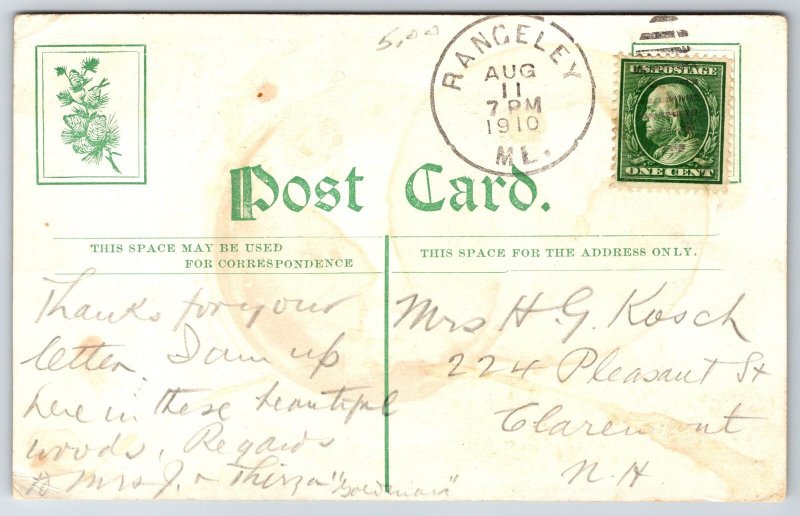 5.00
RANGELEY
AUG
11
7 PM
1910
ME.
U.S. POSTAGE
ONE CENT
Post Card.
THIS SPACE MAY BE USED
FOR CORRESPONDENCE
THIS SPACE FOR THE ADDRESS ONLY.
Thanks for your
letter. I am up
here in these beautiful
woods. Regards
to Mrs J. & Thirza
Mrs H. G. Kosch
224 Pleasant St
Claremont
N. H